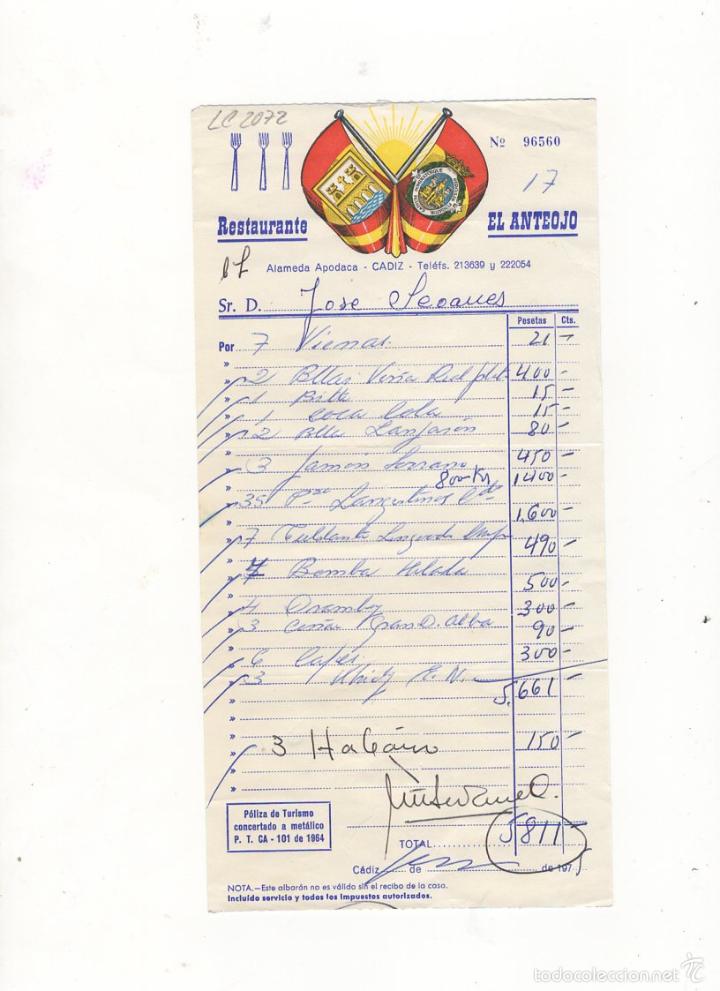 LC 2072
Nº 96560
17
Restaurante EL ANTEOJO
Alameda Apodaca - CADIZ - Teléfs. 213639 y 222054
Sr. D. Jose Seoanes
Pesetas Cts.
Por 7 Vienas 21 -
" 2 Bllas Viña Real 400 -
" 1 Bitter 15 -
" 1 Coca Cola 15 -
" 2 Blla Lanjarón 80 -
" 3 Jamón Serrano 450 -
800 Kg 1400 -
" 35 Langostinos 1,600 -
" 7 490 -
" 4 Bomba Helada
500 -
" 4 300 -
" 3 Gran D. Alba 90 -
" 6 Cafés 300 -
" 3 Whisky 5.661 -
" 3 Habano 150 -
Póliza de Turismo
concertado a metálico
P. T. CA - 101 de 1964
TOTAL 5811 -
Cádiz de de 1975
NOTA.-Este albarán no es válido sin el recibo de la casa.
Incluido servicio y todos los impuestos autorizados.
todocoleccion.net